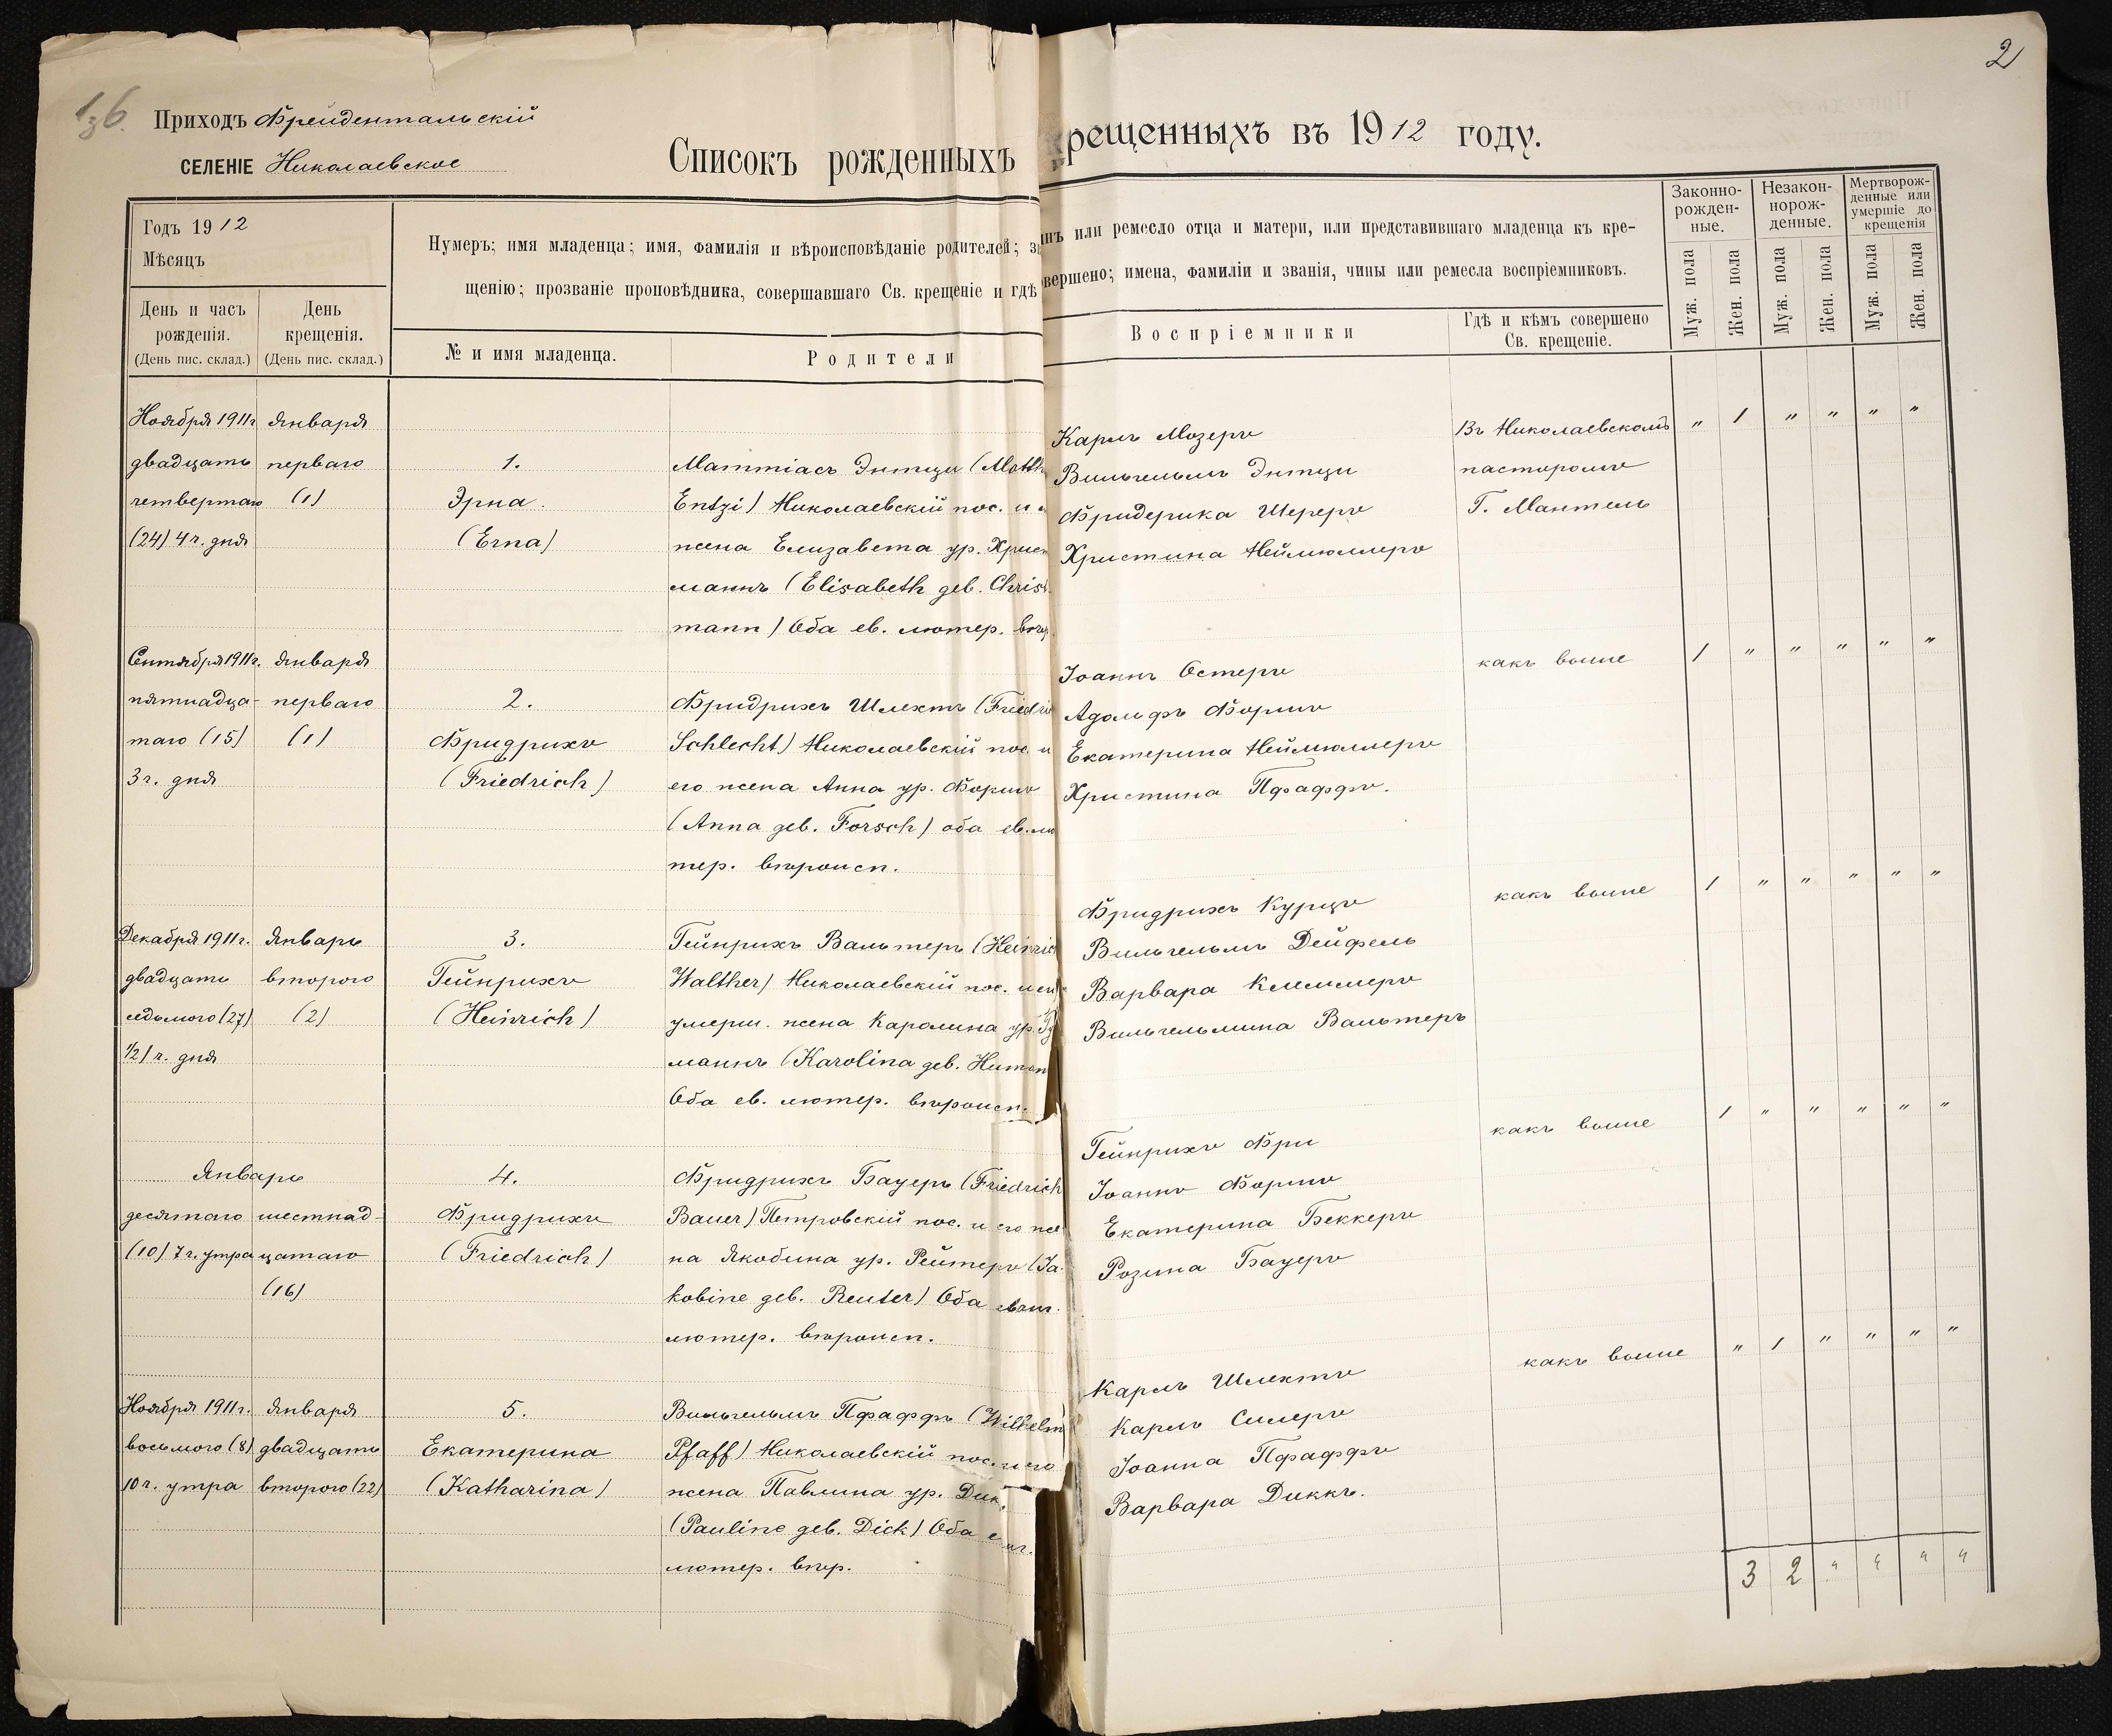 2
1зб.
Приходъ Фрейдентальскій
СЕЛЕНІЕ Николаевское
Списокъ рожденныхъ
рещенныхъ въ 1912 году.
Годъ 1912
Мѣсяцъ
День и часъ рожденія.
(День пис. склад.)
День крещенія.
(День пис. склад.)
Нумеръ; имя младенца; имя, фамилія и вѣроисповѣданіе родителей; з
щенію; прозваніе проповѣдника, совершавшаго Св. крещеніе и гдѣ
№ и имя младенца.
Родители
нъ или ремесло отца и матери, или представившаго младенца къ кре-
вершено; имена, фамиліи и званія, чины или ремесла воспріемниковъ.
Воспріемники
Гдѣ и кѣмъ совершено
Св. крещеніе.
Законно-
рожден-
ные.
Незакон-
норож-
денные.
Мертворож-
денные или
умершіе до
крещенія
Муж. пола
Жен. пола
Муж. пола
Жен. пола
Муж. пола
Жен. пола
Ноября 1911г
двадцать
четвертаго
(24) 4 ч. дня
Января
перваго
(1)
1.
Эрна.
(Erna)
Маттіасъ Энтци (Matth
Entzi) Николаевскій пос. и
жена Елизавета ур. Крист
маннъ (Elisabeth geb. Christ
mann) Оба ев. лютер. вѣр.
Карлъ Мозеръ
Вильгельмъ Энтци
Фридерика Шереръ
Христина Неймюллеръ
Въ Николаевскомъ
пасторомъ
Г. Мантель
" 1 " " " "
Сентября 1911г.
пятнадца-
таго (15)
3 ч. дня
Января
перваго
(1)
2.
Фридрихъ
(Friedrich)
Фридрихъ Шлехтъ (Friedri
Schlecht) Николаевскій пос. и
его жена Анна ур. Форшъ
(Anna geb. Forsch) оба ев. лю
тер. вѣроисп.
Іоаннъ Остеръ
Адольфъ Форшъ
Екатерина Неймюллеръ
Христина Пфаффъ.
какъ выше
1 " " " " "
Декабря 1911г.
двадцать
седьмого (27)
1/2 1 ч. дня
Январь
второго
(2)
3.
Гейнрихъ
(Heinrich)
Гейнрихъ Вальтеръ (Heinrich
Walther) Николаевскій пос. и ег
умерш. жена Каролина ур. Гу
маннъ (Karolina geb. Human
Оба ев. лютер. вѣроисп.
Фридрихъ Курцъ
Вильгельмъ Дейфель
Варвара Клеммеръ
Вильгельмина Вальтеръ
какъ выше
1 " " " " "
Январь
десятаго
(10) 7 ч. утра
шестнад-
цатаго
(16)
4.
Фридрихъ
(Friedrich)
Фридрихъ Бауеръ (Friedrich
Bauer) Петровскій пос. и его же
на Якобина ур. Рейтеръ (Ja
kobine geb. Reuter) Оба еванг.
лютер. вѣроисп.
Гейнрихъ Фри
Іоаннъ Форшъ
Екатерина Беккеръ
Розина Бауеръ
какъ выше
1 " " " " "
Ноября 1911г.
восьмого (8)
10 ч. утра
Января
двадцать
второго (22)
5.
Екатерина
(Katharina)
Вильгельмъ Пфаффъ (Wilhelm
Pfaff) Николаевскій пос. и его
жена Павлина ур. Дик
(Pauline geb. Dick) Оба е
лютер. вѣр.
Карлъ Шлехтъ
Карлъ Силеръ
Іоанна Пфаффъ
Варвара Диккъ.
какъ выше
" 1 " " " "
3 2 " " " "